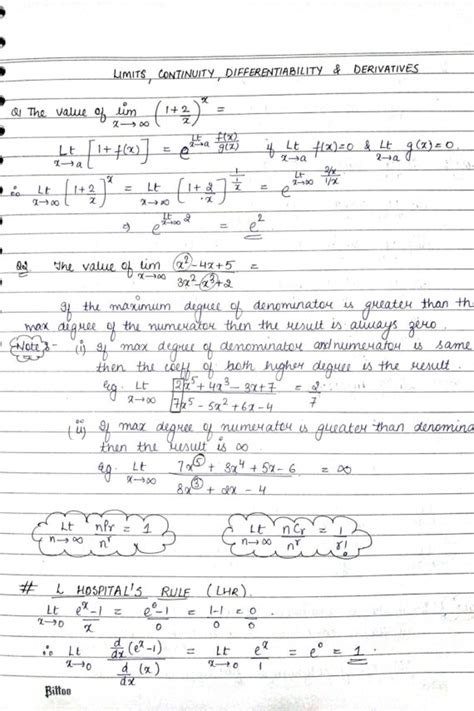 LIMITS, CONTINUITY, DIFFERENTIABILITY & DERIVATIVES
Q1 The value of lim x→∞ (1+2/x)^x =
Lt x→a [1+f(x)] = e^(Lt x→a f(x)/g(x)) if Lt x→a f(x)=0 & Lt x→a g(x)=0.
∴ Lt x→∞ [1+2/x]^x = Lt x→∞ [1+2/x]^(1/(1/x)) = e^(Lt x→∞ (2/x)/(1/x))
⇒ e^(Lt x→∞ 2) = e²
Q2 The value of lim x→∞ (x²-4x+5)/(3x²-x³+2) =
If the maximum degree of denominator is greater than th
max degree of the numerator then the result is always zero.
Note :- (i) If max degree of denominator and numerator is same
then the coeff of both higher degree is the result.
eg. Lt x→∞ (2x⁵+4x³-3x+7)/(7x⁵-5x²+6x-4) = 2/7
(ii) If max degree of numerator is greater than denomina
then the result is ∞
eg. Lt x→∞ (7x⁵+3x⁴+5x-6)/(8x³+2x-4) = ∞
Lt n→∞ nPr/n^r = 1 Lt n→∞ nCr/n^r = 1/r!
# L HOSPITAL'S RULE (LHR)
Lt x→0 (e^x-1)/x = (e⁰-1)/0 = (1-1)/0 = 0/0
∴ Lt x→0 (d/dx (e^x-1))/(d/dx (x)) = Lt x→0 e^x/1 = e⁰ = 1.
Bittoo